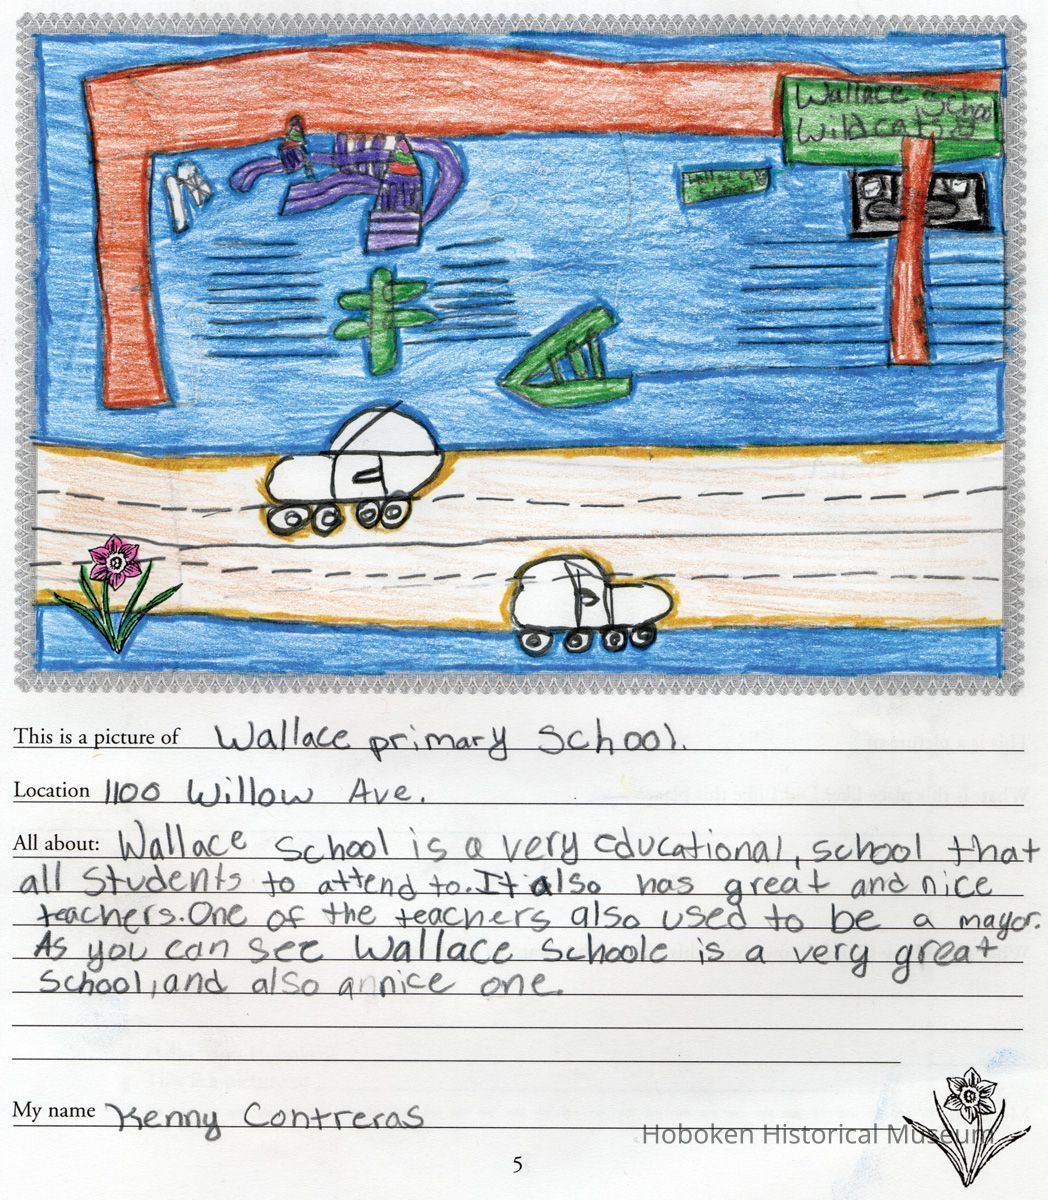 Wallace School
Wildcats
This is a picture of Wallace primary School.
Location 1100 Willow Ave.
All about: Wallace School is a very educational, school that
all students to attend to. It also has great and nice
teachers. One of the teachers also used to be a mayor.
As you can see Wallace Schoole is a very great
school, and also annice one.
My name Kenny Contreras
Hoboken Historical Museum
5